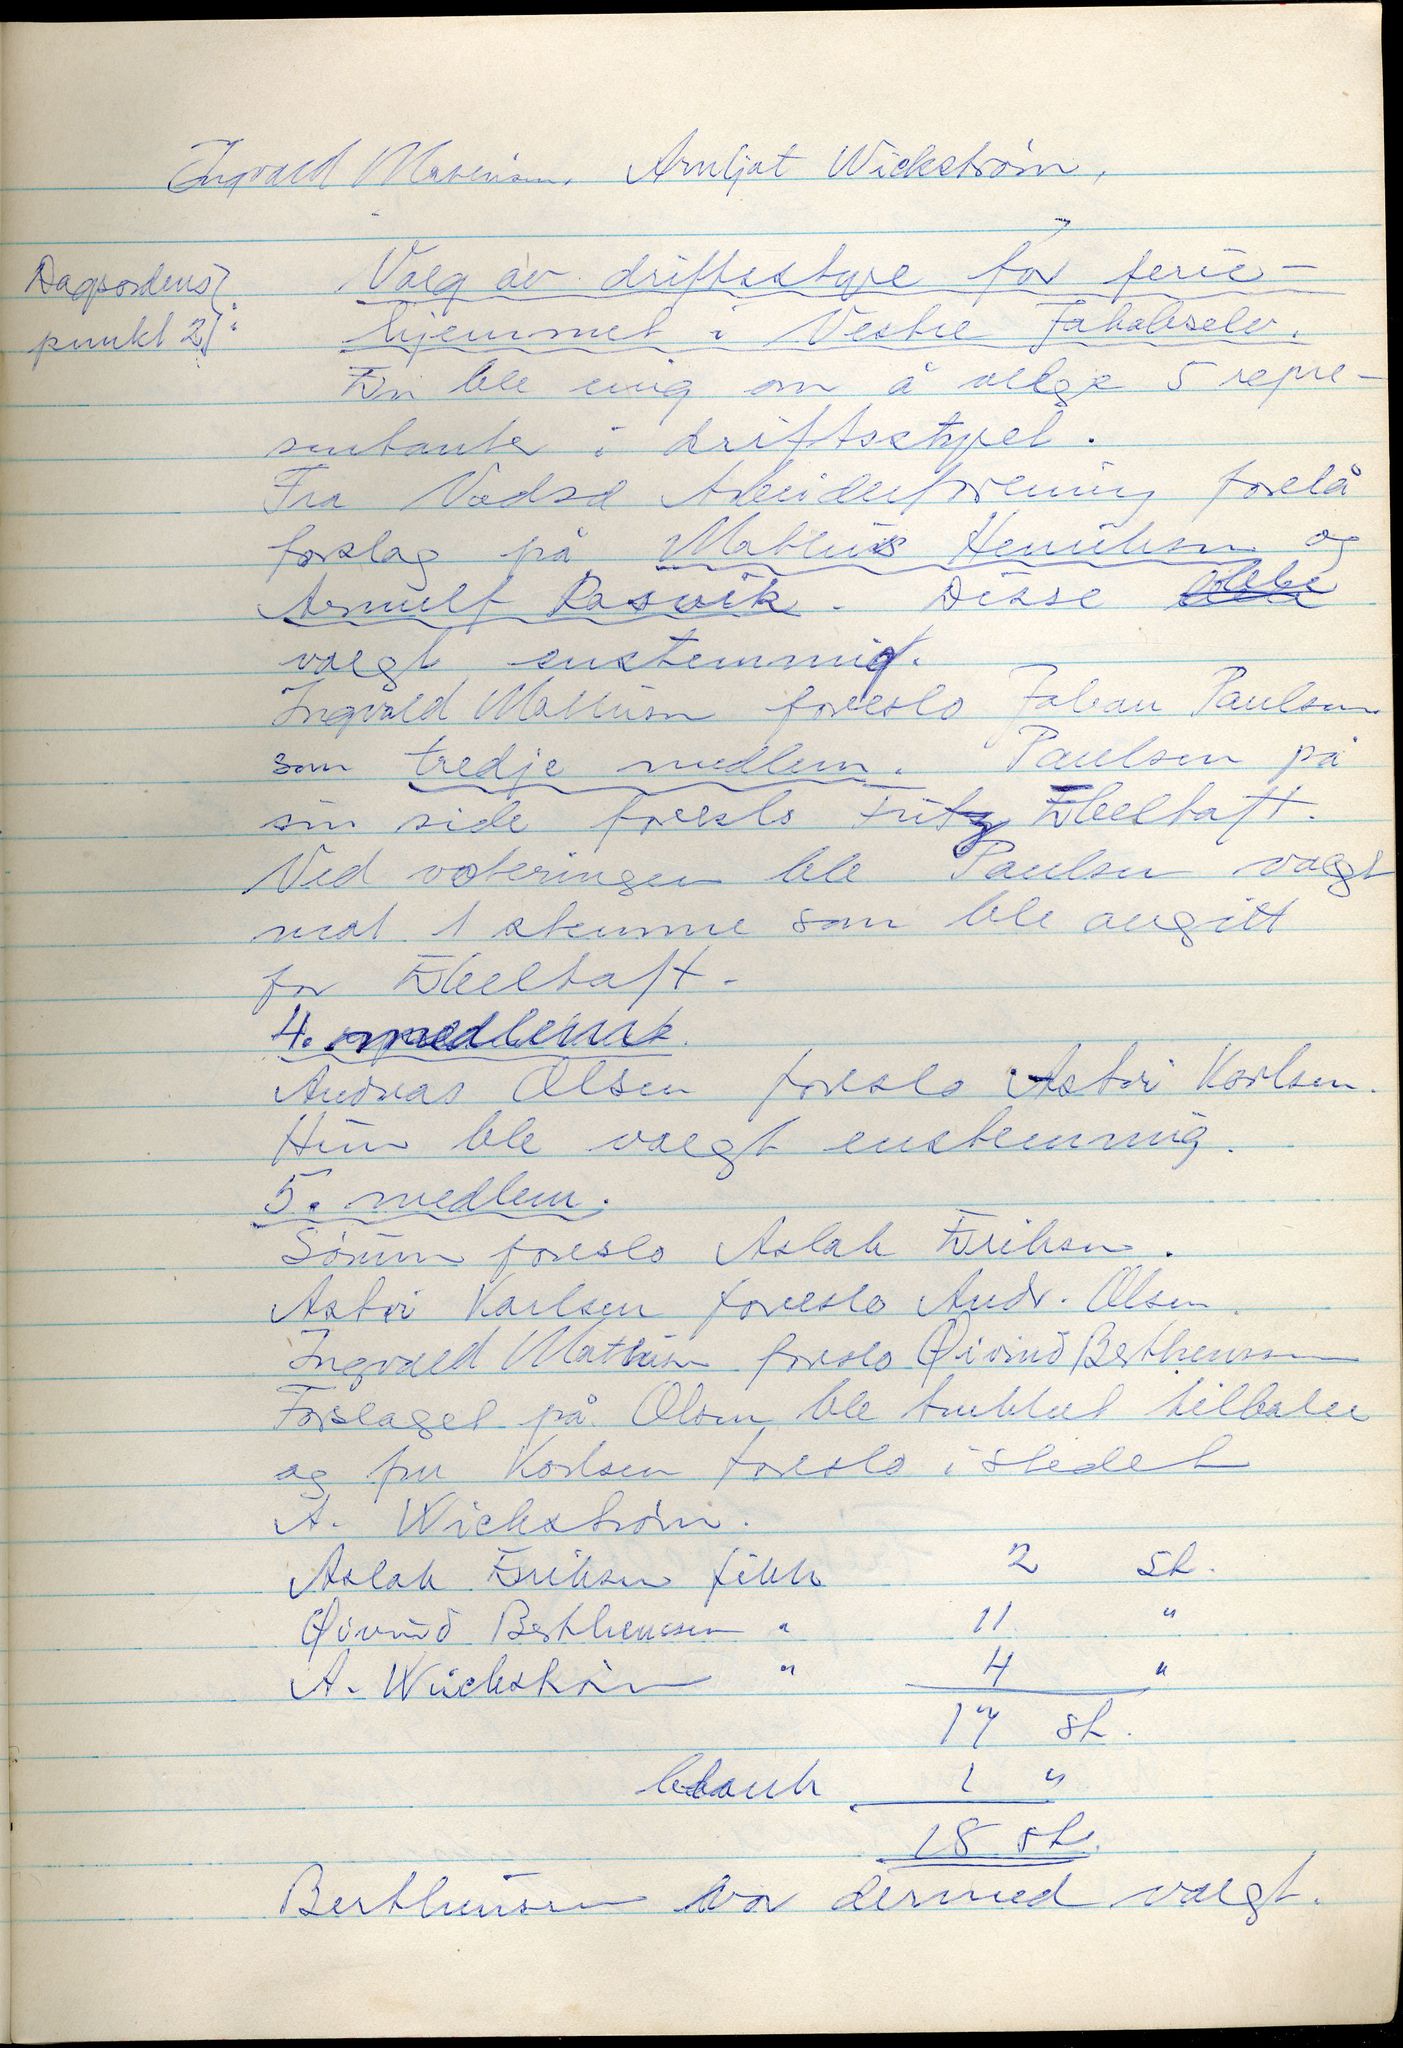 Ingvald Mathisen. Arnljot Wickstrøm.
Dagsordens
punkt 2):
Valg av driftsstyre for ferie-
hjemmet i Vestre Jakobselv.
En ble enig om å velge 5 repre-
sentanter i driftsstyret.
Fra Vadsø Arbeiderforening forelå
forslag på Mathis Henriksen og
Arnulf Rasvik. Disse ble
valgt enstemmig.
Ingvald Mathisen foreslo Johan Paulsen
som tredje medlem. Paulsen på
sin side foreslo Fritz Ebeltoft.
Ved voteringen ble Paulsen valgt
mot 1 stemme som ble avgitt
for Ebeltoft.
4. medlem.
Andreas Olsen foreslo Astri Karlsen.
Hun ble valgt enstemmig.
5. medlem.
foreslo Aslak Eriksen.
Astri Karlsen foreslo Andr. Olsen.
Ingvald Mathisen foreslo Øivind Bertheussen
Forslaget på Olsen ble trukket tilbake
og fru Karlsen foreslo istedet
A. Wickstrøm.
Aslak Eriksen fikk 2 st.
Øivind Bertheussen " 11 "
A. Wickstrøm " 4 "
17 st.
blank 1 "
18 st.
Bertheussen var dermed valgt.